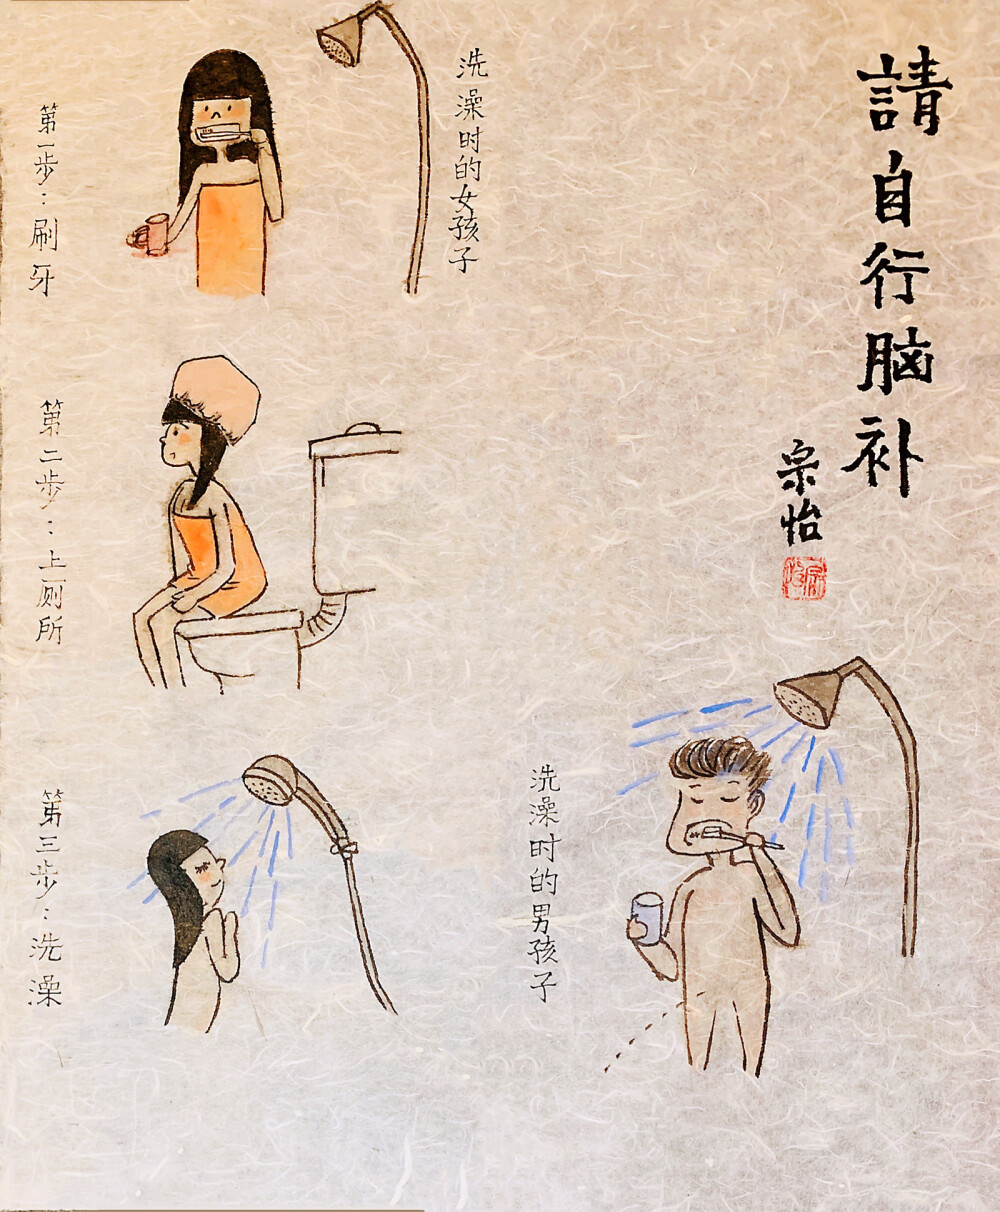 請自行脑补
宗怡
洗澡时的女孩子
第一步：刷牙
第二步：上厕所
第三步：洗澡
洗澡时的男孩子